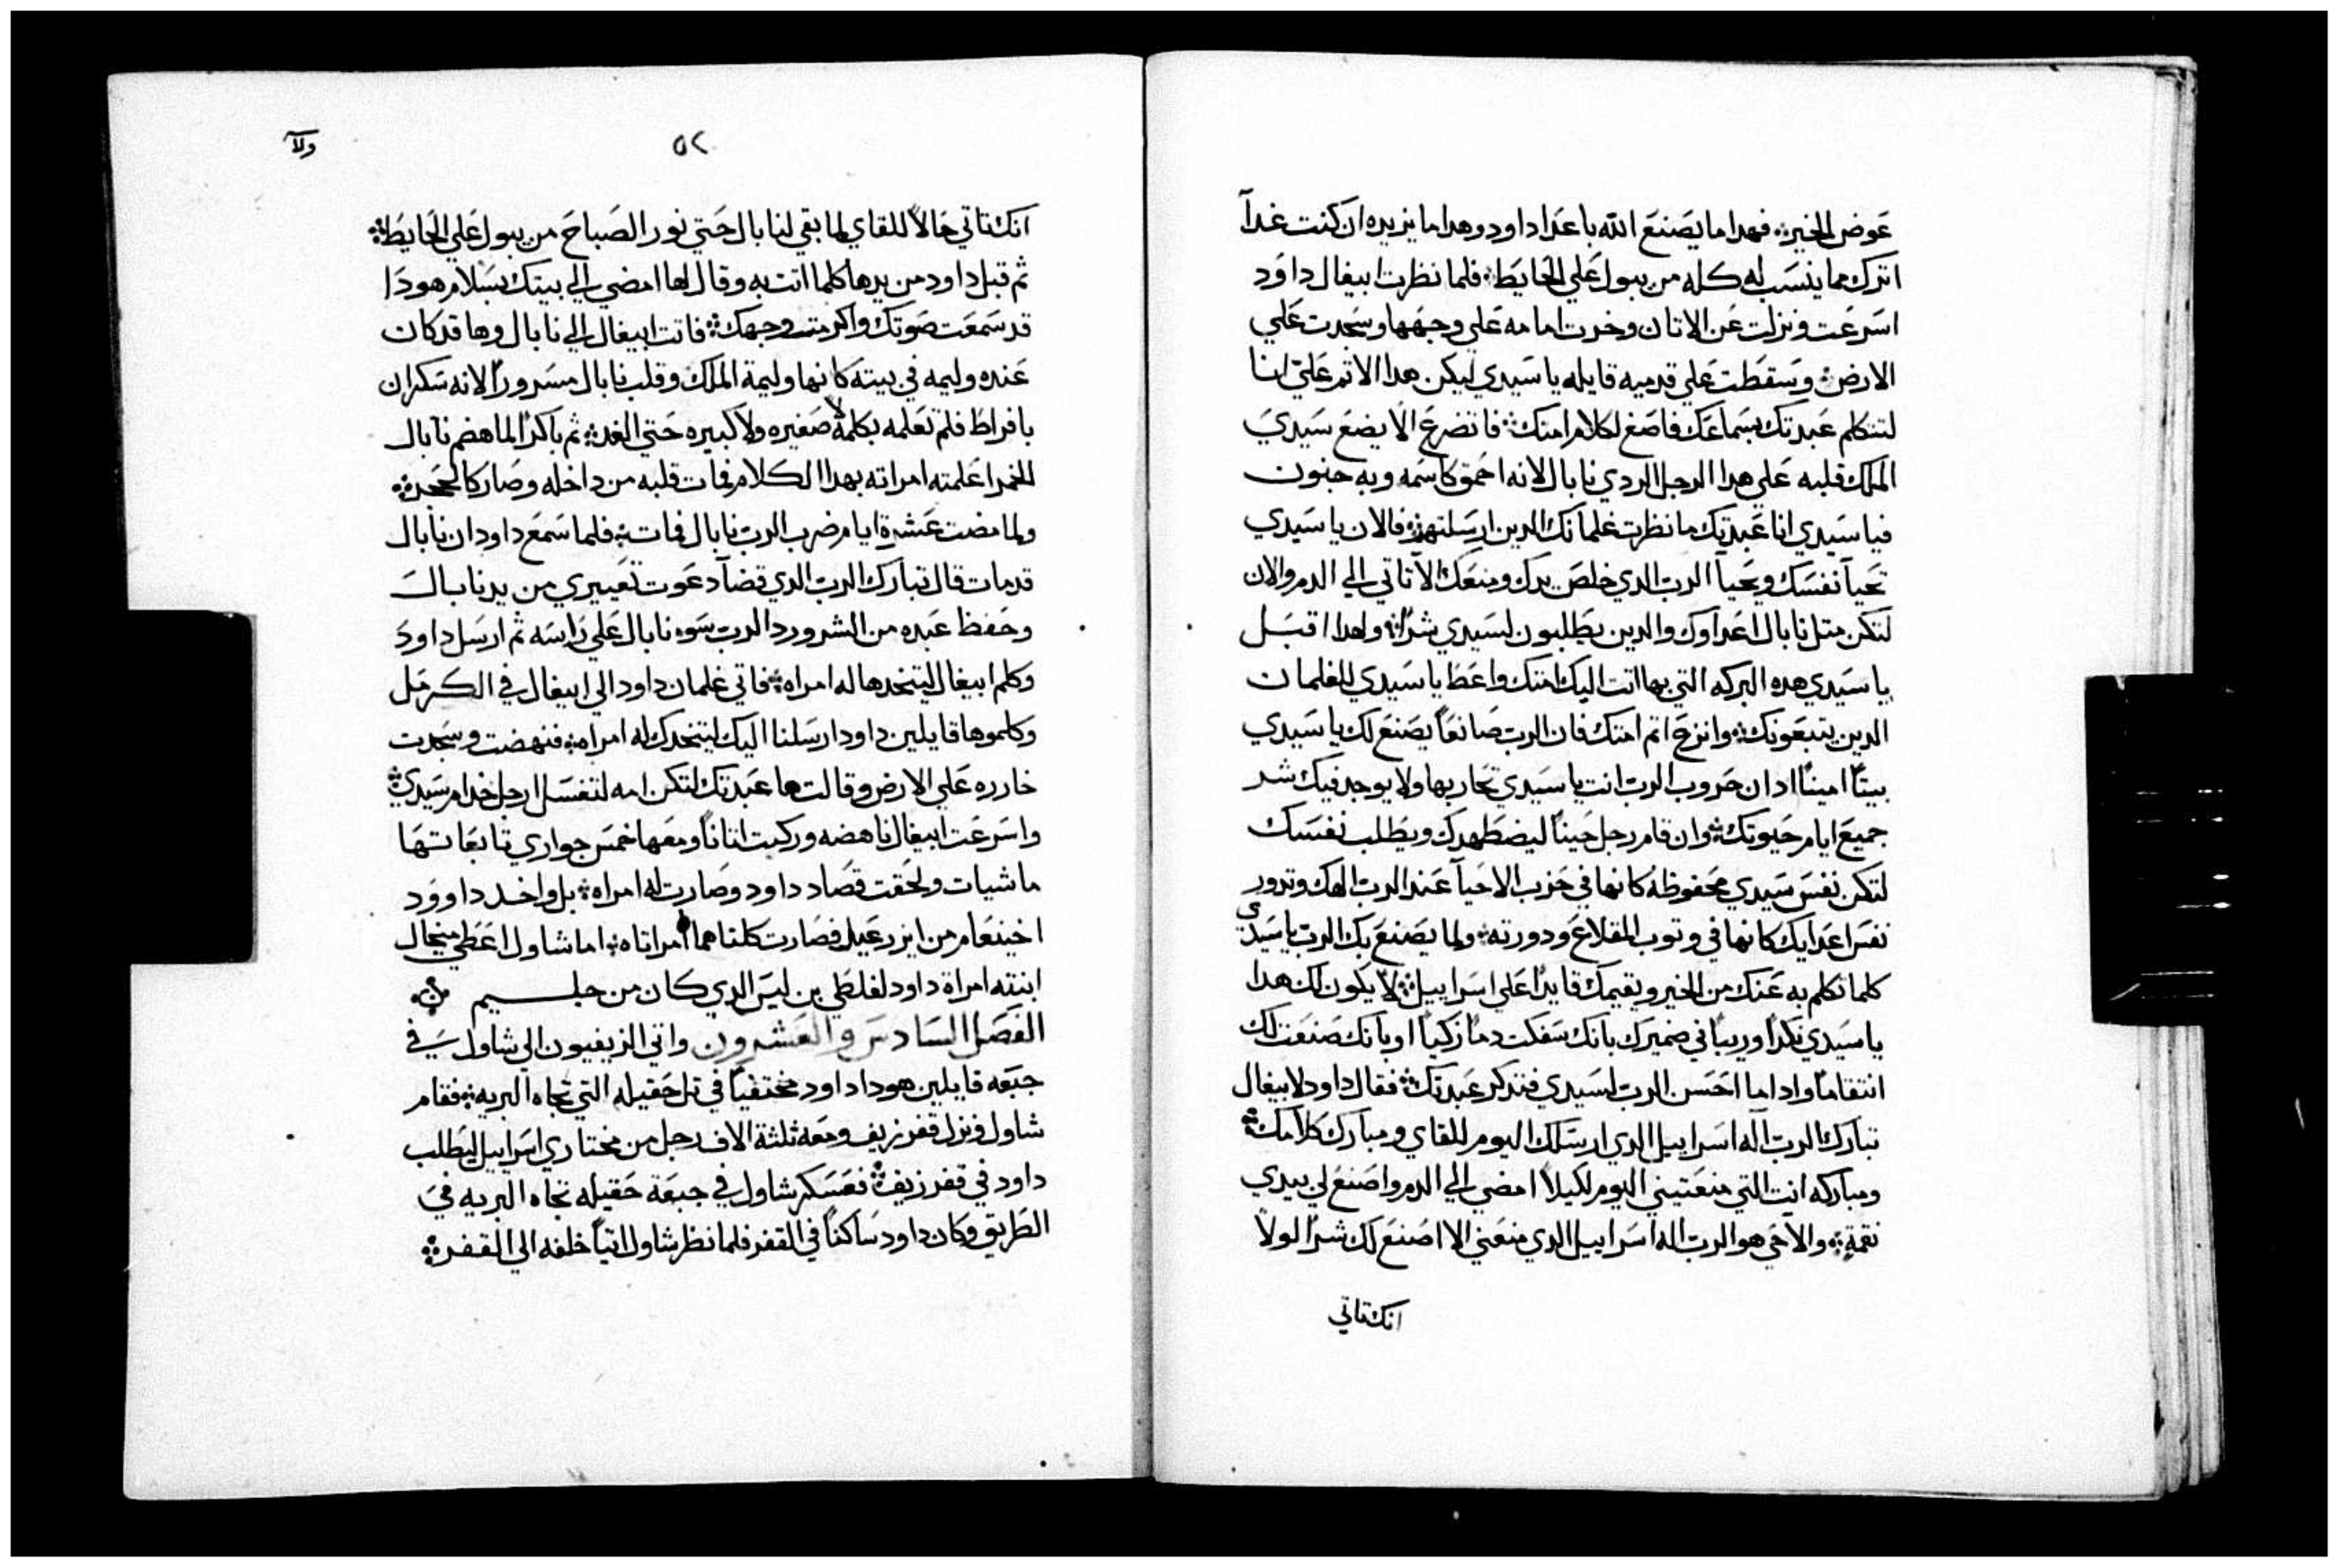 عوض الخير فهدا ما يصنع الله باعدا داود وهدا ما يزيده ان كنت غداً
اترك مما ينسب له كله من يبول علي الحايط فلما نظرت ابيغال داود
اسرعت ونزلت عن الاتان وخرت امامه علي وجهها وسجدت علي
الارض وسقطت علي قدميه قايله يا سيدي ليكن هدا الاثم عليّ انا
لتتكلم عبدتك بسماعك فاصغ لكلام امتك فاتضرع الا يضع سيدي
الملك قلبه علي هدا الرجل الردي نابال لانه احمق كاسمه وبه جنون
فيا سيدي انا عبدتك ما نظرت غلمانك الدين ارسلتهم فالان يا سيدي
تحيا نفسك ويحيا الرب الدي خلص يدك ومنعك الا تاتي الي الدم والان
لتكن متل نابال اعداوك والدين يطلبون لسيدي شراً ولهدا اقبل
يا سيدي هده البركه التي بها اتت اليك امتك واعط يا سيدي للغلمان
الدين يتبعونك وانزح اتم امتك فان الرب صانعاً يصنع لك يا سيدي
بيتاً اميناً ادان حروب الرب انت يا سيدي تحاربها ولا يوجد فيك شر
جميع ايام حيوتك وان قام رجل حيناً ليضطهدك ويطلب نفسك
لتكن نفس سيدي محفوظه كانها في حزب الاحيا عند الرب الهك وتدور
نفس اعدايك كانها في وتوب المقلاع ودورته ولما يصنع بك الرب يا سيدي
كلما تكلم به عنك من الخير ويقيمك قايداً علي اسراييل لا يكون لك هدا
يا سيدي نكدا وريباً في ضميرك بانك سفكت دماً زكياً او بانك صنعت لك
انتقاماً وادا ما احسن الرب لسيدي فتدكر عبدتك فقال داود لابيغال
تبارك الرب اله اسراييل الدي ارسلك اليوم للقاي ومبارك كلامك
ومباركه انت التي منعتيني اليوم لكيلا امضي الي الدم واصنع لي بيدي
نقمة والا حي هو الرب اله اسراييل الدي منعني الا اصنع لك شراً لولا
انك تاتي
ولا
٥٢
انك تاتي حالاً للقاي لما بقي لنابال حتي نور الصباح من يبول علي الحايط
ثم قبل داود من يدها كلما اتت به وقال لها امضي الي بيتك بسلام هودا
قد سمعت صوتك واكرمت وجهك فاتت ابيغال الي نابال وها قد كان
عنده وليمه في بيته كانها وليمة الملك وقلب نابال مسروراً لانه سكران
بافراط فلم تعلمه بكلمة لا صغيره ولا كبيره حتي الغد ثم باكراً لما هضم نابال
الخمر اعلمته امراته بهدا الكلام فمات قلبه من داخله وصار كالحجر
ولما مضت عشرة ايام ضرب الرب نابال فمات فلما سمع داود ان نابال
قد مات قال تبارك الرب الدي قضا دعوت تعييري من يد نابال
وحفظ عبده من الشر ورد الرب سوء نابال علي راسه ثم ارسل داود
وكلم ابيغال ليتخدها له امراه فاتي غلمان داود الي ابيغال في الكرمل
وكلموها قايلين داود ارسلنا اليك ليتخدك له امراه فنهضت وسجدت
خارره علي الارض وقالت ها عبدتك لتكن امه لتغسل ارجل خدام سيدي
واسرعت ابيغال ناهضه وركبت اتاناً ومعها خمس جواري تابعاتها
ماشيات ولحقت قصاد داود وصارت له امراه بل واخد داوود
اخينعام من ايزرعيل فصارت كلتاهما امراتاه اما شاول اعطي ميخال
ابنته امراة داود لفلطي بن ليس الدي كان من جليم
الفصل السادس والعشرون واتي الزيفيون الي شاول في
جبعه قايلين هودا داود مختفياً في تل حقيله التي تجاه البريه فقام
شاول ونزل قفر زيف ومعه ثلثة الاف رجل من مختاري اسراييل ليطلب
داود في قفر زيف فعسكر شاول في جبعة حقيله تجاه البريه في
الطريق وكان داود ساكناً في القفر فلما نظر شاول اتياً خلفه الي القفر